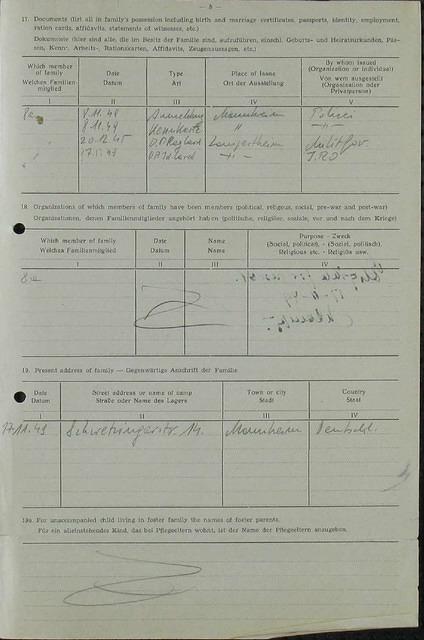 — 5 —
17. Documents (list all in family's possession including birth and marriage certificates, passports, identity, employment, ration cards, affidavits, statements of witnesses, etc.)
Dokumente (hier sind alle, die im Besitz der Familie sind, aufzuführen, einschl. Geburts- und Heiratsurkunden, Pässen, Kenn-, Arbeits-, Rationskarten, Affidavits, Zeugenaussagen, etc.)
Which member of family
Welches Familienmitglied
Date
Datum
Type
Art
Place of Issue
Ort der Ausstellung
By whom issued (Organization or individual)
Von wem ausgestellt (Organization oder Privatperson)
I II III IV V
8.11.49 Anmeldung Mannheim Polizei
8.11.49 Kennkarte " -"-
20.12.45 Militgov.
-"- IRO
18. Organizations of which members of family have been members (political, religious, social, pre-war and post-war)
Organizationen, denen Familienmitglieder angehört haben (politische, religiöse, soziale, vor und nach dem Kriege)
Which member of family
Welches Familienmitglied
Date
Datum
Name
Name
Purpose - Zweck
(Social, political), - (Sozial, politisch).
Religious etc. - Religiös usw.
I II III IV
19. Present address of family — Gegenwärtige Anschrift der Familie
Date
Datum
Street address or name of camp
Straße oder Name des Lagers
Town or city
Stadt
Country
Staat
I II III IV
17.11.49 Schwetzingerstr. 14. Mannheim Deutschl.
19a. For unaccompanied child living in foster family the names of foster parents.
Für ein alleinstehendes Kind, das bei Pflegeeltern wohnt, ist der Name der Pflegeeltern anzugeben.